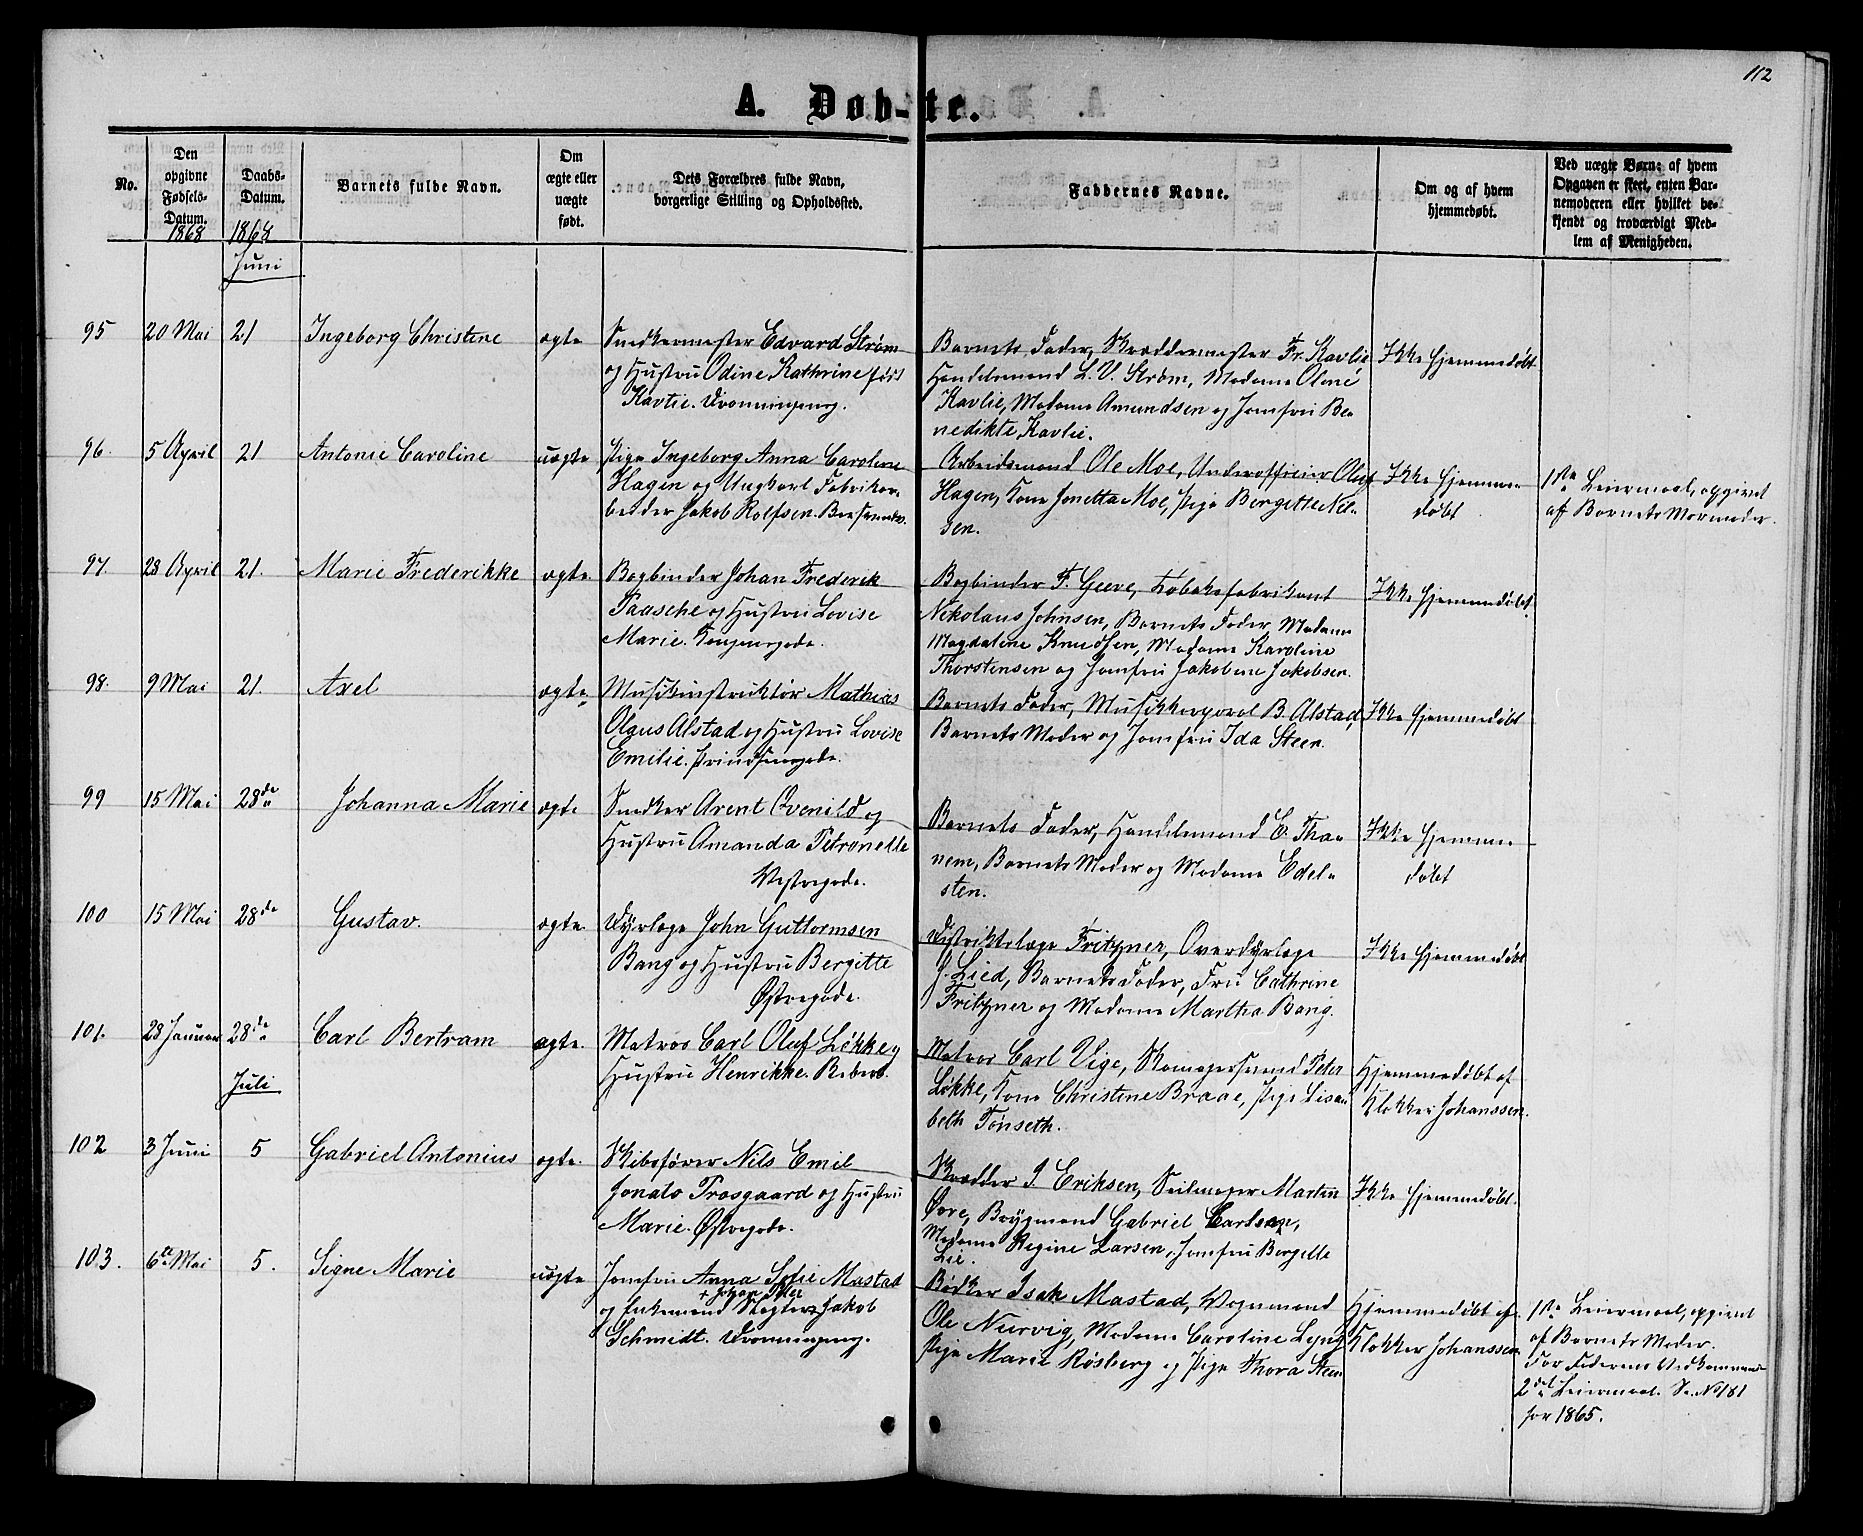 112
A. Døb-te.
No.
Den opgivne Fødsels-Datum.
1868
Daabs-Datum.
1868
Juni
Barnets fulde Navn.
Om ægte eller uægte født.
Dets Forældres fulde Navn, borgerlige Stilling og Opholdssted.
Faddernes Navne.
Om og af hvem hjemmedøbt.
Ved uægte Børn: af hvem Opgaven er skeet, enten Barnemoderen eller hvilket bekjendt og troværdigt Medlem af Menigheden.
95 20 Mai 21 Ingeborg Christine ægte
Snedkermester Edvard Strøm
og Hustru Odine Kathrine født
Kavlie.
Barnets Fader, Skræddermester Fr. Kavlie
Handelsmand L. V. Strøm, Madame Oline
Kavlie, Madame Amundsen og Jomfru Be-
nedikte Kavlie.
Ikke hjemmedøbt
96. 5 April 21 Antonie Caroline uægte
Pige Ingeborg Anna Caroline
Hagen og Ungkarl Fabrikar-
beider Jakob Rolfsen.
Arbeidsmand Ole Moe, Underofficier Oluf
Hagen, Kone Jonetta Moe, Pige Bergitte Niel-
sen.
Ikke hjemme-
døbt
1ste Leiermaal, opgivet
af Barnets Mormoder.
97. 28 April 21. Marie Frederikke ægte.
Bogbinder Johan Frederik
Paasche og Hustru Lovise
Marie. Kongensgade.
Bogbinder F. Geeve, Tobaksfabrikant
Nikolaus Johnsen, Barnets Fader Madame
Magdaline Knudsen, Madame Karoline
Thorstensen og Jomfru Jakobine Jakobsen.
Ikke hjemmedøbt.
98. 9 Mai 21. Axel ægte
Musikinstruktør Mathias
Olaus Alstad og Hustru Lovise
Emilie. Prindsensgade.
Barnets Fader, Musikkorporal B. Alstad,
Barnets Moder og Jomfru Ida Steen.
Ikke hjemmedøbt
99 15 Mai 28de Johanna Marie ægte
Snedker Arent Qvenild og
Hustru Amanda Petronelle
Vestregade.
Barnets Fader, Handelsmand E. Tha-
nem, Barnets Moder og Madame Edel-
sten.
Ikke hjemme-
døbt
100 15 Mai 28de Gustav. ægte.
Dyrlæge John Guttormsen
Bang og Hustru Bergitte
Østregade.
Distriktslæge Fritzner, Overdyrlæge
J. Lied, Barnets Fader, Fru Cathrine
Fritzner og Madame Martha Bang.
Ikke hjemmedøbt
101. 28 Januar 28de Carl Bertram ægte.
Matros Carl Oluf Løkke og
Hustru Henrikke. Baklandet.
Matros Carl Vige, Skomagersvend Peter
Løkke, Kone Christine Braae, Pige Lisa-
beth Tønseth.
Hjemmedøbt af
Klokker Johanssen.
Juli
102 3 Juni 5 Gabriel Antonius ægte.
Skibsfører Nils Emil
Jonats Trosgaard og Hustru
Marie. Østregade.
Skrædder J Eriksen, Seilmager Martin
Øvre, Brygmand Gabriel Carlsen,
Madame Regine Larsen, Jomfru Bergette
Lie.
Ikke hjemmedøbt.
103. 6te Mai 5. Signe Marie uægte
Jomfru Anna Sofie Mastad
+ Johan Peter
og Enkemand Slagter Jakob
Schmidt.
Bødker Isak Mastad, Vognmand
Ole Nervig, Madame Caroline Lyng
Pige Marie Røsberg og Pige Thora Steen
Hjemmedøbt af
Klokker Johanssen.
1ste Leiermaal, opgivet
af Barnets Moder.
For Faderens Vedkommende
2det Leiermaal. Se No 181
for 1865.